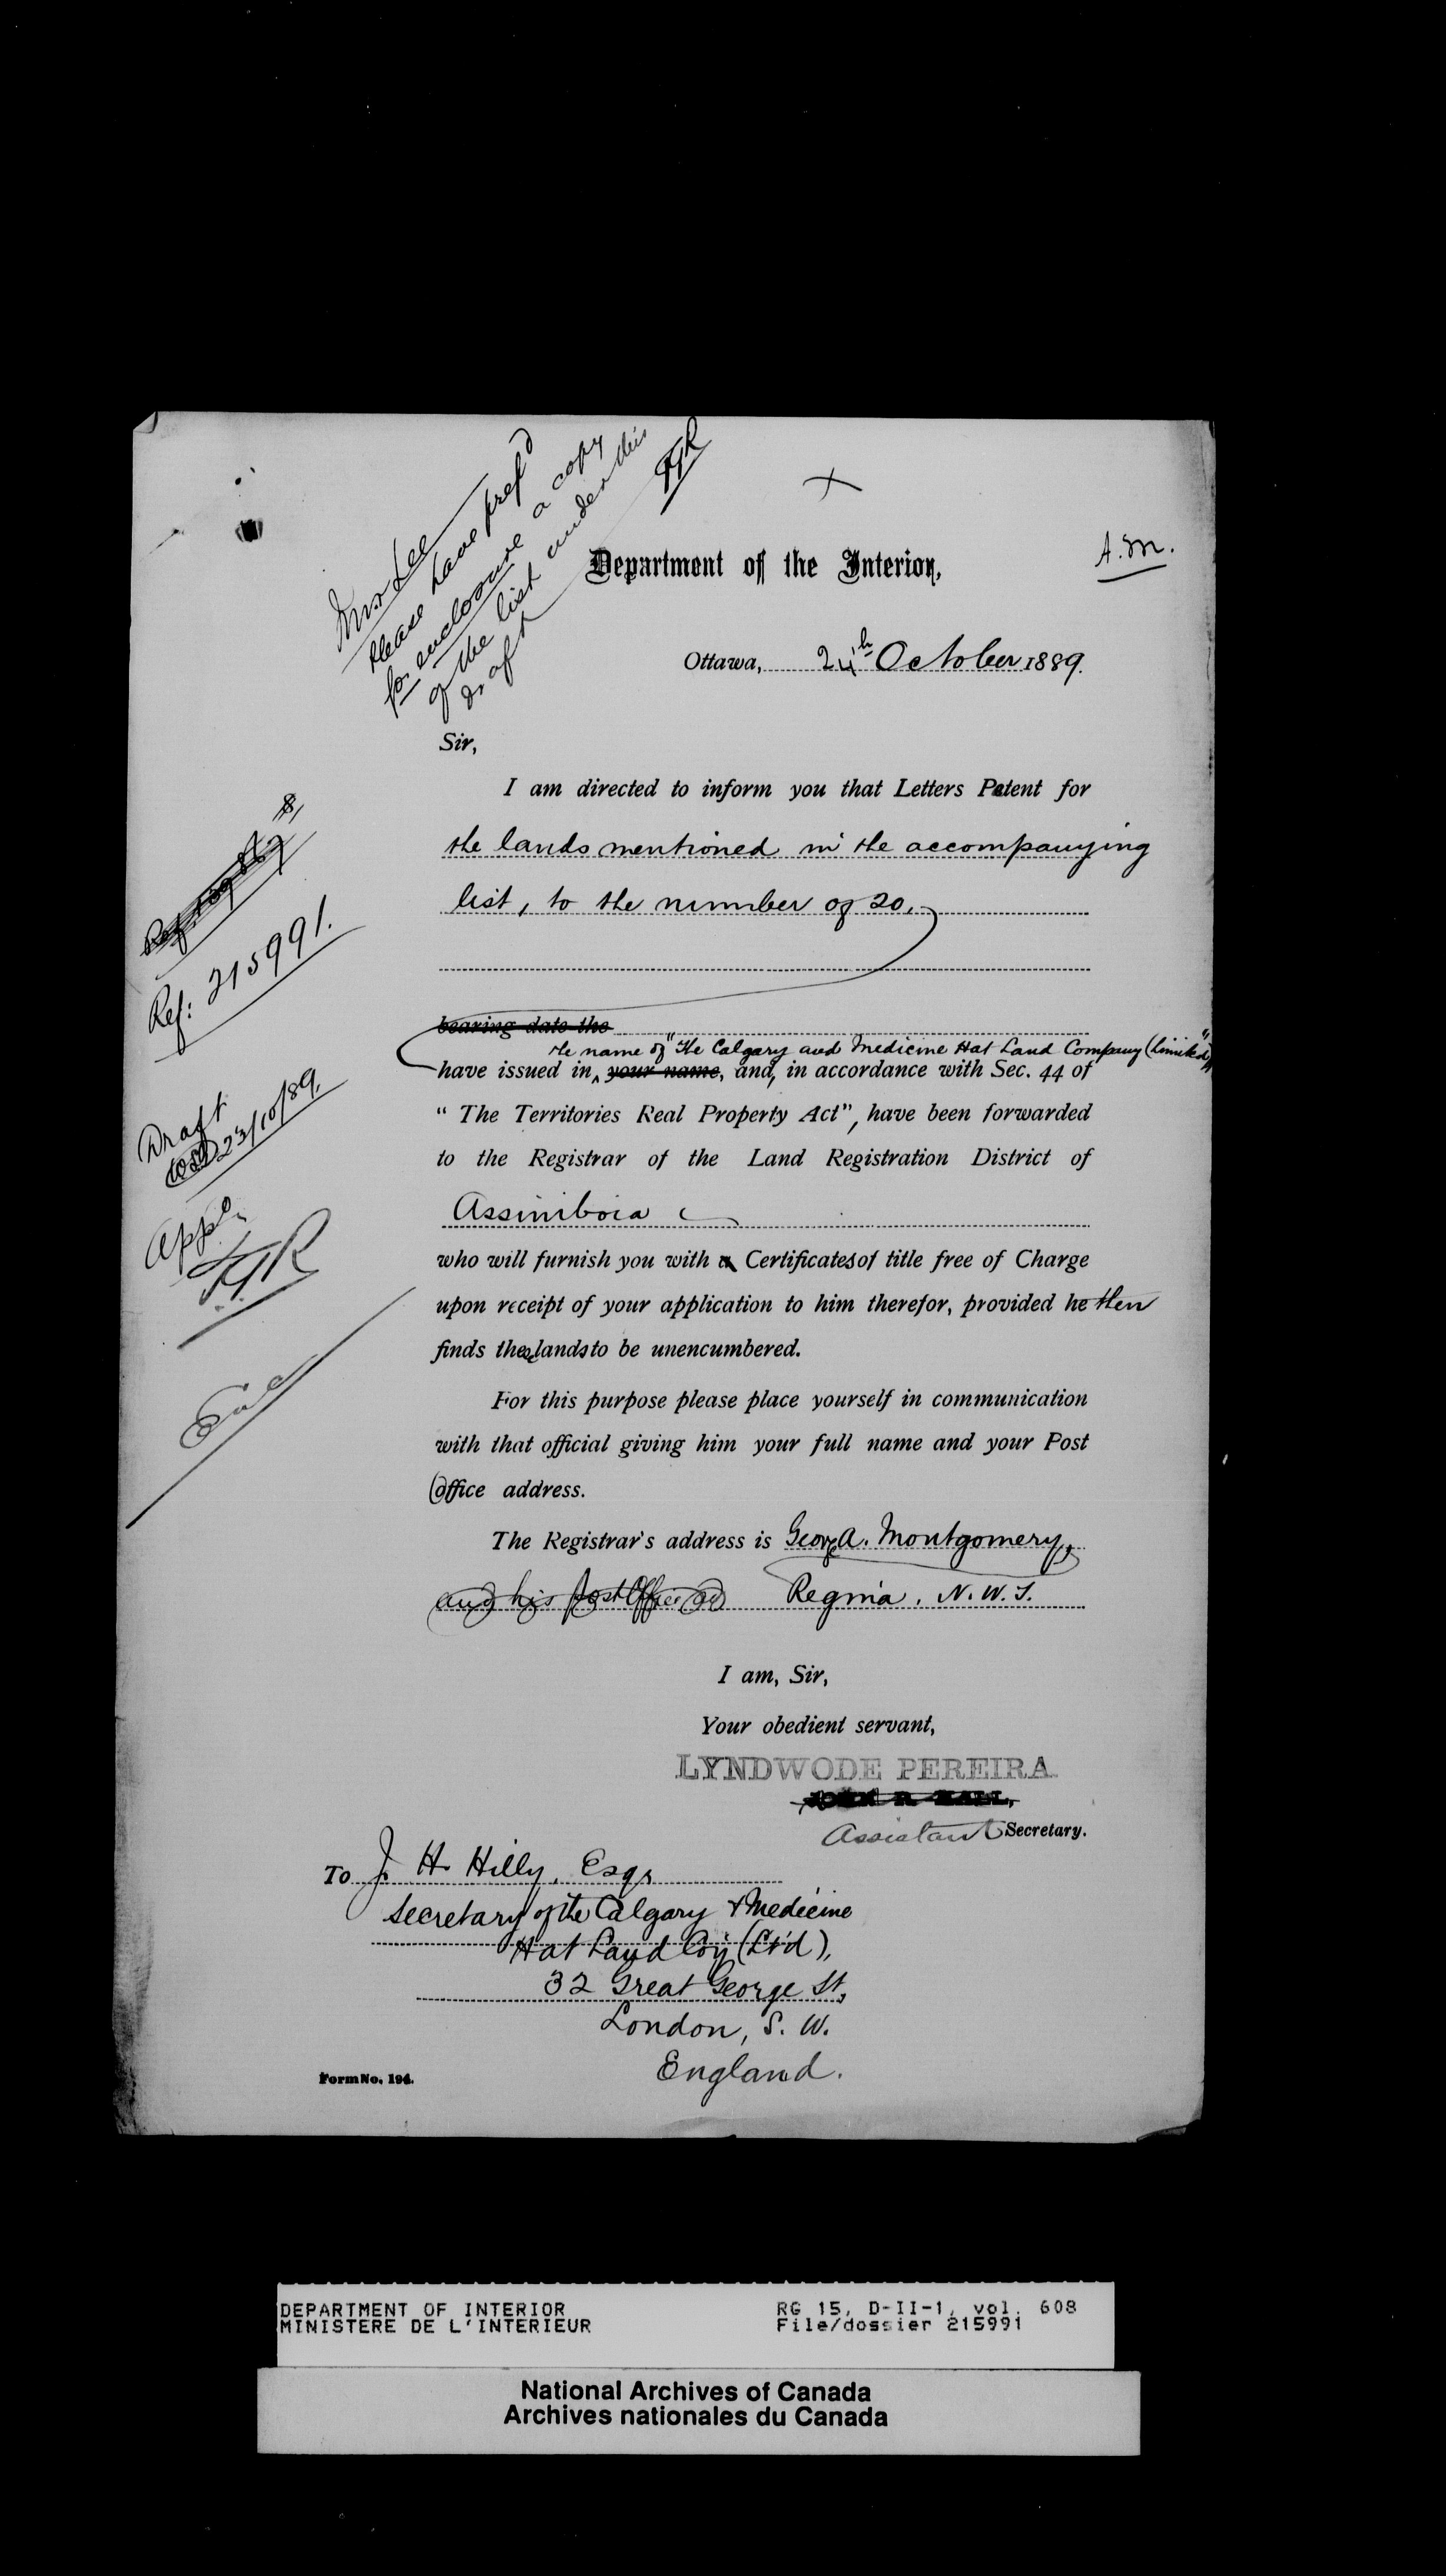 Mr Lee
Please have pref'd
for enclosure a copy
of the list under this
draft
A.M.
Department of the Interior,
Ottawa, 24th October 1889.
Sir,
I am directed to inform you that Letters Patent for
the lands mentioned in the accompanying
list, to the number of 20,
Ref: 215991.
bearing date the
the name of "The Calgary and Medicine Hat Land Company (Limited)"
have issued in your name, and, in accordance with Sec. 44 of
"The Territories Real Property Act", have been forwarded
to the Registrar of the Land Registration District of
Draft
23/10/89.
Assiniboia
who will furnish you with a Certificates of title free of Charge
upon receipt of your application to him therefor, provided he then
finds these lands to be unencumbered.
For this purpose please place yourself in communication
with that official giving him your full name and your Post
Office address.
The Registrar's address is George A. Montgomery,
and his Post Office ad Regina, N.W.T.
I am, Sir,
Your obedient servant,
LYNDWODE PEREIRA
JOHN R. HALL,
Assistant Secretary.
To J. H. Hilly, Esqr
Secretary of the Calgary & Medicine
Hat Land Coy (Lt'd),
32 Great George St,
London, S. W.
England.
Form No. 194.
DEPARTMENT OF INTERIOR RG 15, D-II-1, vol. 608
MINISTERE DE L'INTERIEUR File/dossier 215991
National Archives of Canada
Archives nationales du Canada